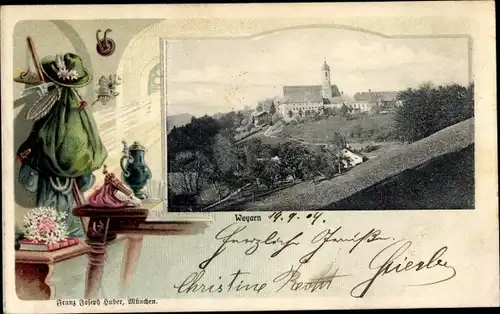 Weyarn 19.9.04.
Herzliche Grüße.
Christine
Franz Joseph Huber, München.